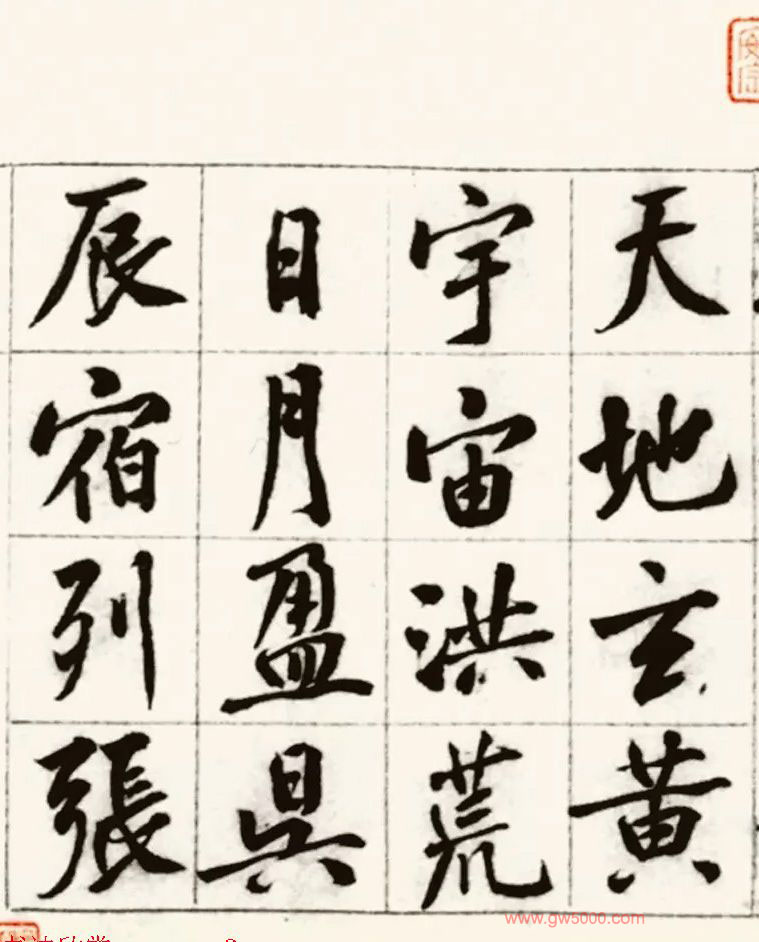 天地玄黄
宇宙洪荒
日月盈昃
辰宿列張
www.gw5000.com